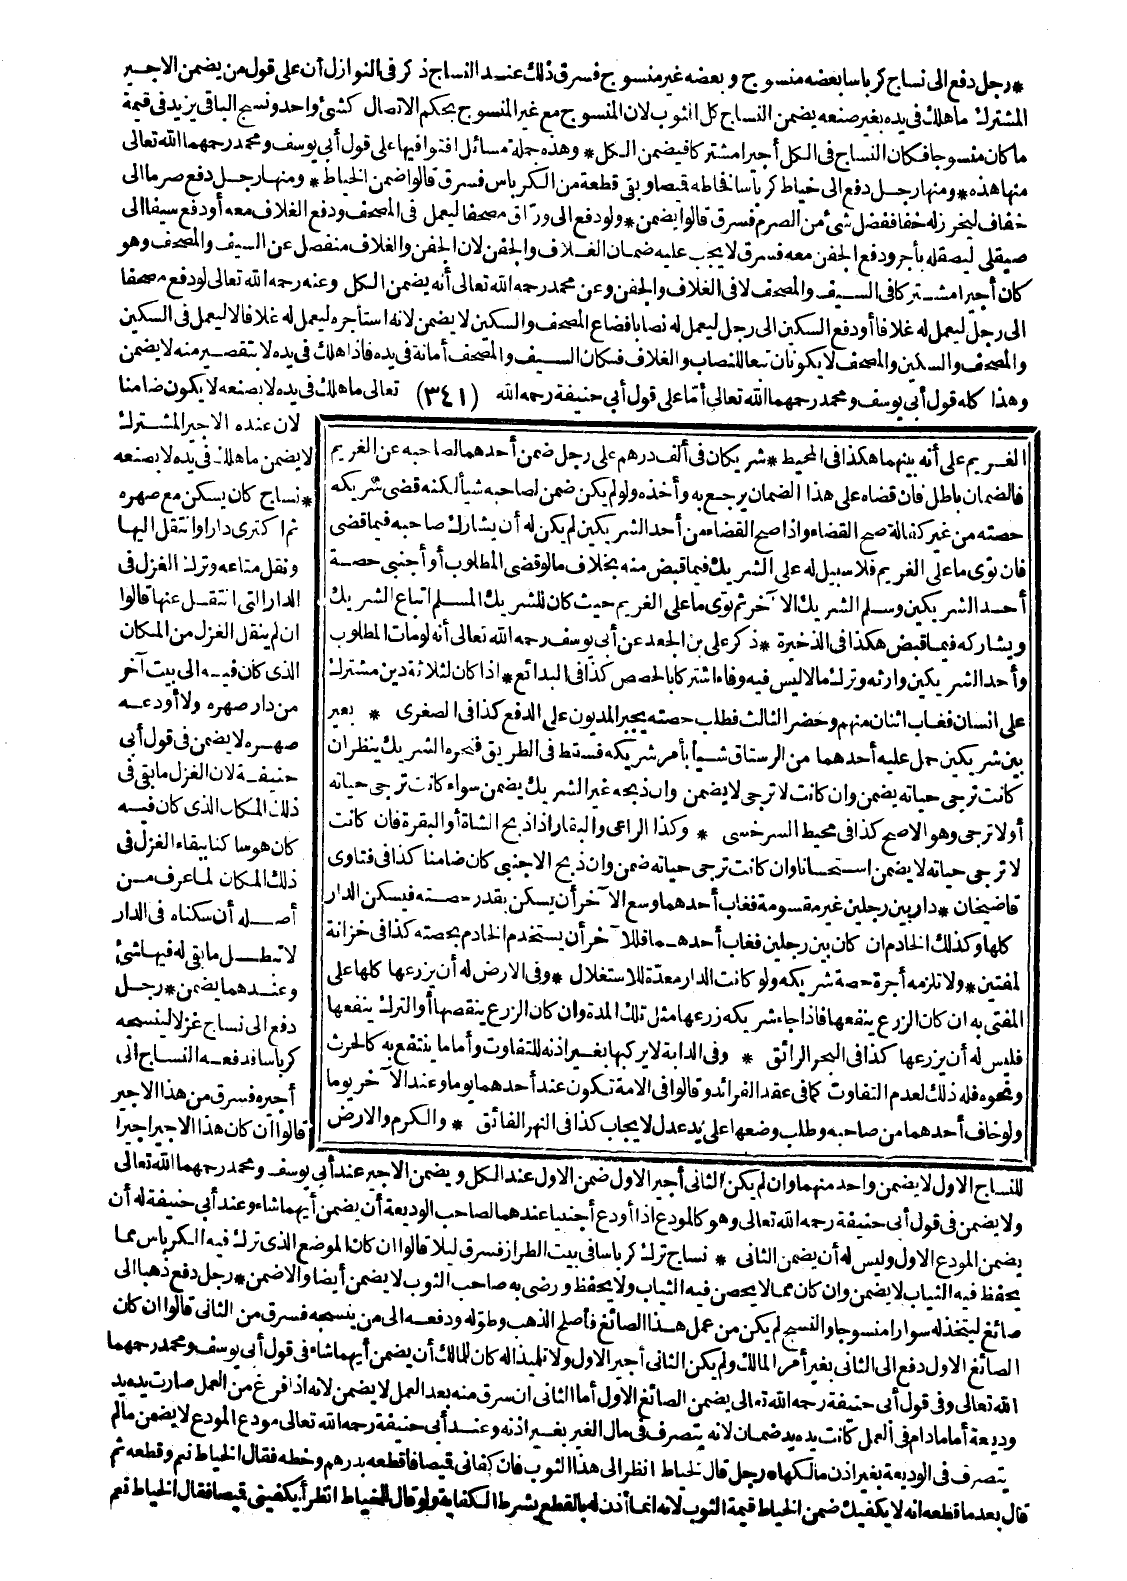 * رجل دفع الى نساج كرباسا بعضه منسوج وبعضه غير منسوج فسرق ذلك عند النساج ذكر فى النوازل أن على قول من يضمن الاجير
المشترك ماهلك فى يده بغير صنعه يضمن النساج كل الثوب لان المنسوج مع غير المنسوج بحكم الاتصال كشئ واحد ونسج الباقى يزيد فى قيمة
ما كان منسوجا فكان النساج فى الكل أجيرا مشتركا فيضمن الكل * وهذه جملة مسائل افتوا فيها على قول أبى يوسف ومحمد رحمهما الله تعالى
منها هذه * ومنها رجل دفع الى خياط كرباسا فخاطه قميصا وبقى قطعة من الكرباس فسرق قالوا ضمن الخياط * ومنها رجل دفع صرما الى
خفاف ليخرز له خفا ففضل شئ من الصرم فسرق قالوا يضمن * ولو دفع الى وراق مصحفا ليعمل فى المصحف ودفع الغلاف معه أو دفع سيفا الى
صيقلى ليصقله بأجر ودفع الجفن معه فسرق لا يجب عليه ضمان الغلاف والجفن لان الجفن والغلاف منفصل عن السيف والمصحف وهو
كان أجيرا مشتركا فى السيف والمصحف لا فى الغلاف والجفن وعن محمد رحمه الله تعالى أنه يضمن الكل وعنه رحمه الله تعالى لو دفع مصحفا
الى رجل ليعمل له غلافا أو دفع السكين الى رجل ليعمل له نصابا فضاع المصحف والسكين لا يضمن لانه استأجره ليعمل له غلافا لا ليعمل فى السكين
والمصحف والسكين والمصحف لا يكونان تبعا للنصاب والغلاف فكان السيف والمصحف أمانة فى يده فاذا هلك فى يده لا بتقصير منه لا يضمن
وهذا كله قول أبى يوسف ومحمد رحمهما الله تعالى أما على قول أبى حنيفة رحمه الله (٣٤١) تعالى ماهلك فى يده لا بصنعه لا يكون ضامنا
لان عنده الاجير المشترك
لا يضمن ماهلك فى يده لا بصنعه
* نساج كان يسكن مع صهره
ثم اكترى دارا وانتقل اليها
ونقل متاعه وترك الغزل فى
الدار التى انتقل عنها قالوا
ان لم ينقل الغزل من المكان
الذى كان فيه الى بيت آخر
من دار صهره ولا أودعه
صهره لا يضمن فى قول أبى
حنيفة لان الغزل ما بقى فى
ذلك المكان الذى كان فيه
كان هو ساكنا ببقاء الغزل فى
ذلك المكان لما عرف من
أصله أن سكناه فى الدار
لا تبطل ما بقى له فيها شئ
وعندهما يضمن * رجل
دفع الى نساج غزلا لينسجه
كرباسا فدفعه النساج الى
أجيره فسرق من هذا الاجير
قالوا أن كان هذا الاجير اجيرا
الغريم على أنه بينهما هكذا فى المحيط * شريكان فى ألف درهم على رجل ضمن أحدهما لصاحبه عن الغريم
فالضمان باطل فان قضاه على هذا الضمان يرجع به وأخذه ولو لم يكن ضمن لصاحبه شيأ لكنه قضى شريكه
حصته من غير كفالة صح القضاء واذا صح القضاء من أحد الشريكين لم يكن له أن يشارك صاحبه فيما قضى
فان توى ما على الغريم فلا سبيل له على الشريك فيما قبض منه بخلاف مالو قضى المطلوب أو أجنبى حصة
أحد الشريكين وسلم الشريك الآخر ثم توى ما على الغريم حيث كان للشريك المسلم اتباع الشريك
ويشاركه فيما قبض هكذا فى الذخيرة * ذكر على بن الجعد عن أبى يوسف رحمه الله تعالى أنه لو مات المطلوب
وأحد الشريكين وارثه وترك مالا ليس فيه وفاء اشتركا بالحصص كذا فى البدائع * اذا كان لثلاثة دين مشترك
على انسان فغاب اثنان منهم وحضر الثالث فطلب حصته يجبر المديون على الدفع كذا فى الصغرى * بعير
بين شريكين حمل عليه أحدهما من الرستاق شيأ بأمر شريكه فسقط فى الطريق فنحره الشريك ينظر ان
كانت ترجى حياته يضمن وان كانت لا ترجى لا يضمن وان ذبحه غير الشريك يضمن سواء كانت ترجى حياته
أو لا ترجى وهو الاصح كذا فى محيط السرخسى * وكذا الراعى والبقار اذا ذبح الشاة أو البقرة فان كانت
لا ترجى حياته لا يضمن استحسانا وان كانت ترجى حياته ضمن وان ذبح الاجنبى كان ضامنا كذا فى فتاوى
قاضيخان * دار بين رجلين غير مقسومة فغاب أحدهما وسع الآخر أن يسكن بقدر حصته فيسكن الدار
كلها وكذلك الخادم ان كان بين رجلين فغاب أحدهما فللآخر أن يستخدم الخادم بحصته كذا فى خزانة
لمفتين * ولا تلزمه أجرة حصة شريكه ولو كانت الدار معدة للاستغلال * وفى الارض له أن يزرعها كلها على
المفتى به ان كان الزرع ينفعها فاذا جاء شريكه زرعها مثل تلك المدة وان كان الزرع ينقصها أو الترك ينفعها
فليس له أن يزرعها كذا فى البحر الرائق * وفى الدابة لا يركبها بغير اذنه للتفاوت وأما ما ينتفع به كالحرث
ونحوه فله ذلك لعدم التفاوت كما فى عقد الفرائد وقالوا فى الامة تكون عند أحدهما يوما وعند الآخر يوما
ولو خاف أحدهما من صاحبه وطلب وضعها على يد عدل لا يجاب كذا فى النهر الفائق * والكرم والارض
للنساج الاول لا يضمن واحد منهما وان لم يكن الثانى أجير الاول ضمن الاول عند الكل ويضمن الاجير عند أبى يوسف ومحمد رحمهما الله تعالى
ولا يضمن فى قول أبى حنيفة رحمه الله تعالى وهو كالمودع اذا أودع أجنبيا عندهما لصاحب الوديعة أن يضمن أيهما شاء وعند أبى حنيفة له أن
يضمن المودع الاول وليس له أن يضمن الثانى * نساج ترك كرباسا فى بيت الطراز فسرق ليلا قالوا ان كان الموضع الذى ترك فيه الكرباس مما
يحفظ فيه الثياب لا يضمن وان كان مما لا يحصن فيه الثياب ولا يحفظ ورضى به صاحب الثوب لا يضمن أيضا والا ضمن * رجل دفع ذهبا الى
صائغ ليتخذ له سوارا منسوجا والنسج لم يكن من عمل هذا الصائغ فأصلح الذهب وطوله ودفعه الى من ينسجه فسرق من الثانى قالوا ان كان
الصائغ الاول دفع الى الثانى بغير أمر المالك ولم يكن الثانى أجير الاول ولا تلميذا له كان للمالك أن يضمن أيهما شاء فى قول أبى يوسف ومحمد رحمهما
الله تعالى وفى قول أبى حنيفة رحمه الله تعالى يضمن الصائغ الاول أما الثانى ان سرق منه بعد العمل لا يضمن لانه اذا فرغ من العمل صارت يده يد
وديعة أما مادام فى العمل كانت يده يد ضمان لانه يتصرف فى مال الغير بغير اذنه وعند أبى حنيفة رحمه الله تعالى مودع المودع لا يضمن مالم
يتصرف فى الوديعة بغير اذن مالكها * رجل قال لخياط انظر الى هذا الثوب فان كفانى قميصا فاقطعه بدرهم وخطه فقال الخياط نعم وقطعه ثم
قال بعد ما قطعه انه لا يكفيك ضمن الخياط قيمة الثوب لانه انما أذن له بالقطع بشرط الكفاية ولو قال للخياط انظر أيكفينى قميصا فقال الخياط نعم